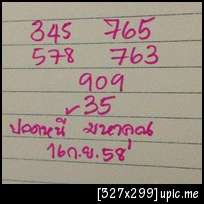 345 765
578 763
909
35
ปลดหนี้ มหาลุ้น
16 ก.ย. 58
[327x299] upic.me